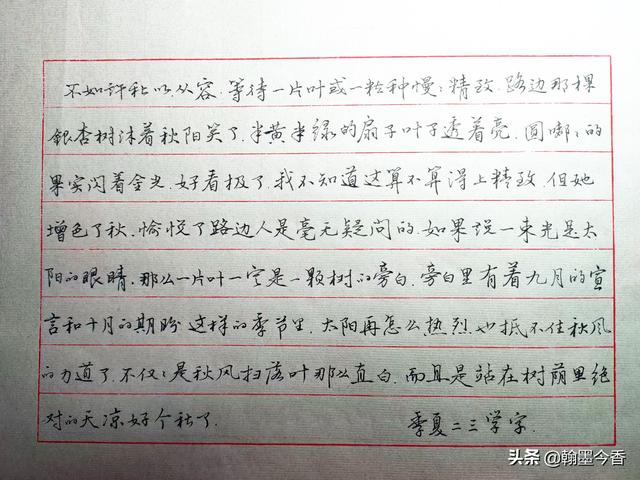 不如許秋以从容.等待一片叶或一粒种慢慢精致.路边那棵
銀杏树沐着秋阳笑了.半黄半绿的扇子叶子透着亮.圆嘟嘟的
果实闪着金光.好看极了.我不知道这算不算得上精致.但她
增色了秋.愉悦了路边人是毫无疑问的.如果说一束光是太
阳的眼睛.那么一片叶一定是一颗树的旁白.旁白里有着九月的宣
言和十月的期盼.这样的季节里.太阳再怎么热烈.也抵不住秋风
的力道了.不仅仅是秋风扫落叶那么直白.而且是站在树荫里绝
对的天凉好个秋了.
季夏二三学字.
头条@翰墨今香